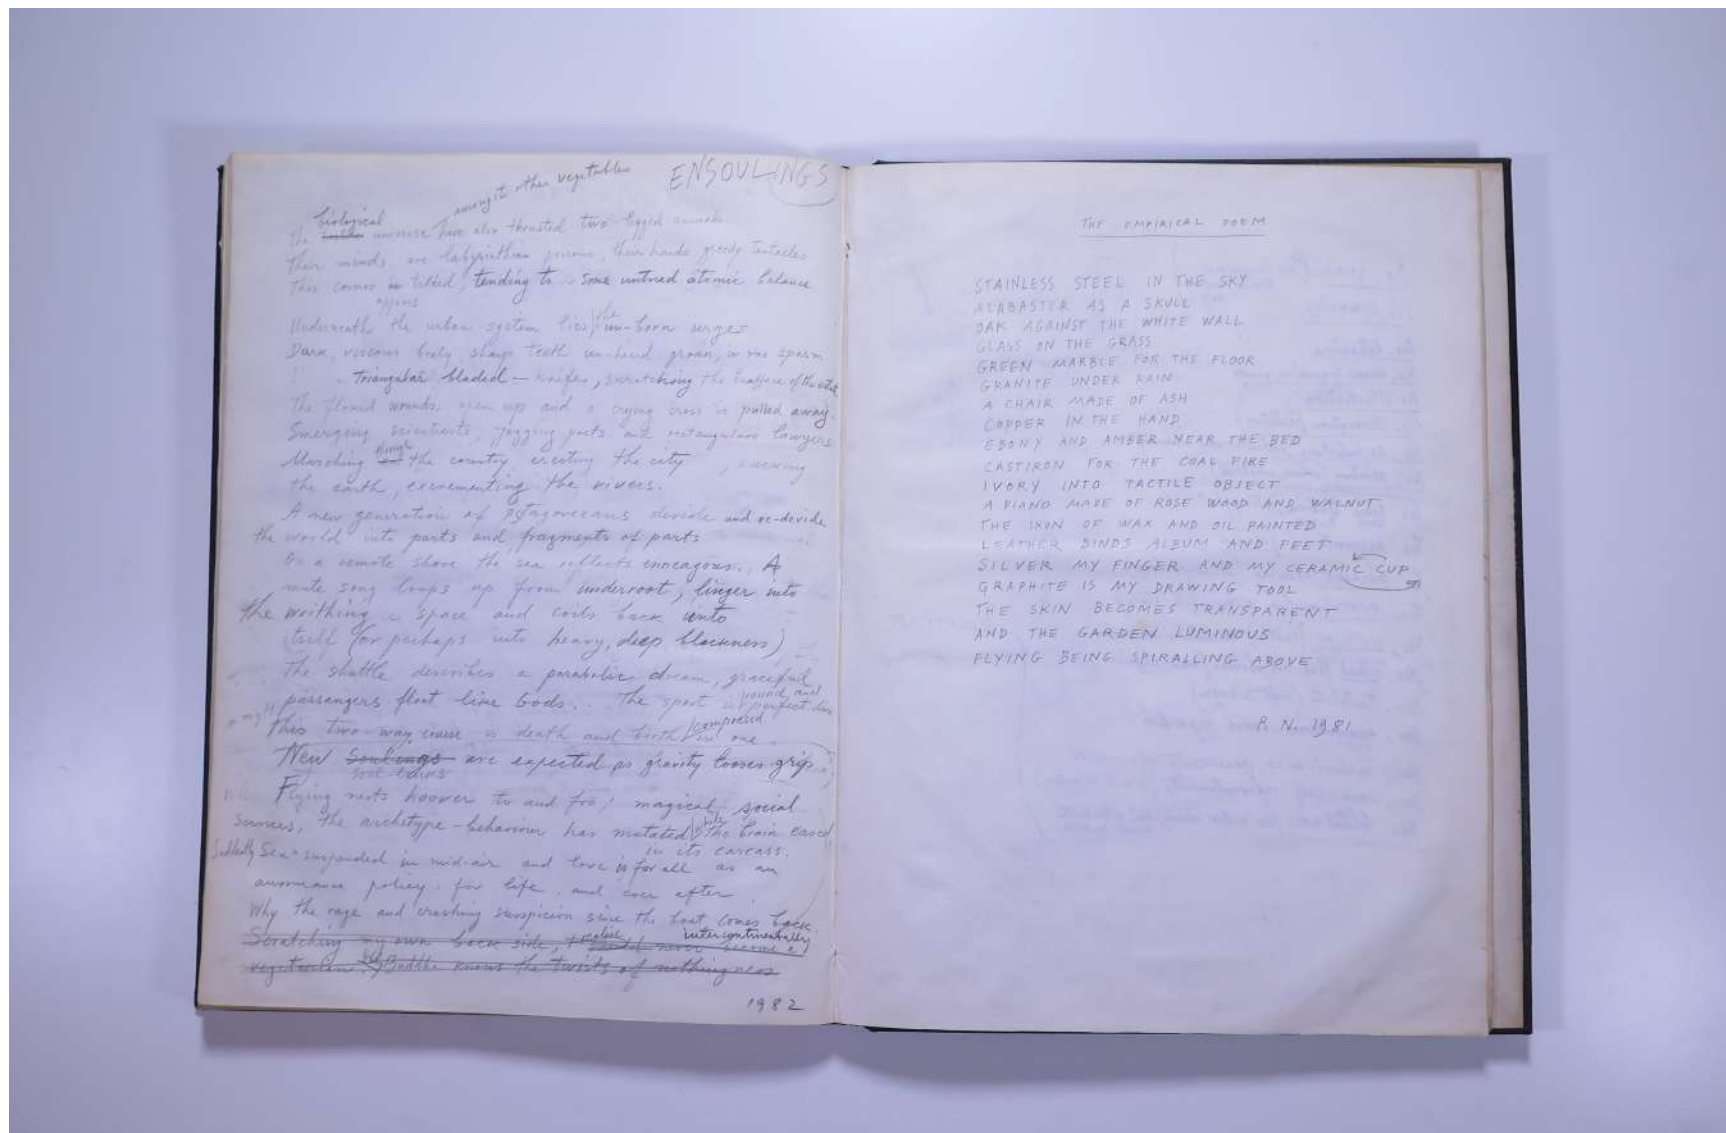 ENSOULINGS
amongst other vegetables
biological
The universe have also thrusted two legged animals
Their minds are labyrinthian prisons, their hands greedy tentacles
This cosmos is tilted, tending to some untrued atomic balance
Underneath the urban system lies the un-born urges
Dark, viscous body, sharp teeth un-heard groan, in one spasm
Triangular bladed - knifes, scratching the surface of the
The flowed wounds open ups and a crying is pulled away
Emerging scientists, jogging poets and rectangulare lawyers
Marching the country, erecting the city, sucking
the earth, excrementing the rivers.
A new generation of divide and re-divide
the world into parts and fragments of parts
On a remote shore the sea reflects enneagons.. A
mute song loops up from underroot, linger into
the writhing space and coils back unto
itself (or perhaps into heavy, deep blackness)
The shuttle describes a parabolic dream, graceful
passengers float like Gods.. The sport is round and perfect
This two-way cruise is death and birth compressed in one
New Soulings are expected as gravity looses grip
Flying nests hoover to and fro, magical, social
Services, the archetype-behaviour has mutated while the brain eased
in its carcass.
Suddenly Sea suspended in mid-air and love is for all as an
assurance policy for life and ever after
Why the rage and crushing suspicion since the boat comes back
intercontinentally
Scratching my own back side, I never become a
vegetarian Buddha knows the twists of nothingness
1982
THE EMPIRICAL POEM
STAINLESS STEEL IN THE SKY
ALABASTER AS A SKULL
OAK AGAINST THE WHITE WALL
GLASS ON THE GRASS
GREEN MARBLE FOR THE FLOOR
GRANITE UNDER RAIN
A CHAIR MADE OF ASH
COPPER IN THE HAND
EBONY AND AMBER NEAR THE BED
CASTIRON FOR THE COAL FIRE
IVORY INTO TACTILE OBJECT
A PIANO MADE OF ROSE WOOD AND WALNUT
THE IKON OF WAX AND OIL PAINTED
LEATHER BINDS ALBUM AND FEET
SILVER MY FINGER AND MY CERAMIC CUP
GRAPHITE IS MY DRAWING TOOL
THE SKIN BECOMES TRANSPARENT
AND THE GARDEN LUMINOUS
FLYING BEING SPIRALLING ABOVE
P. N. 1981